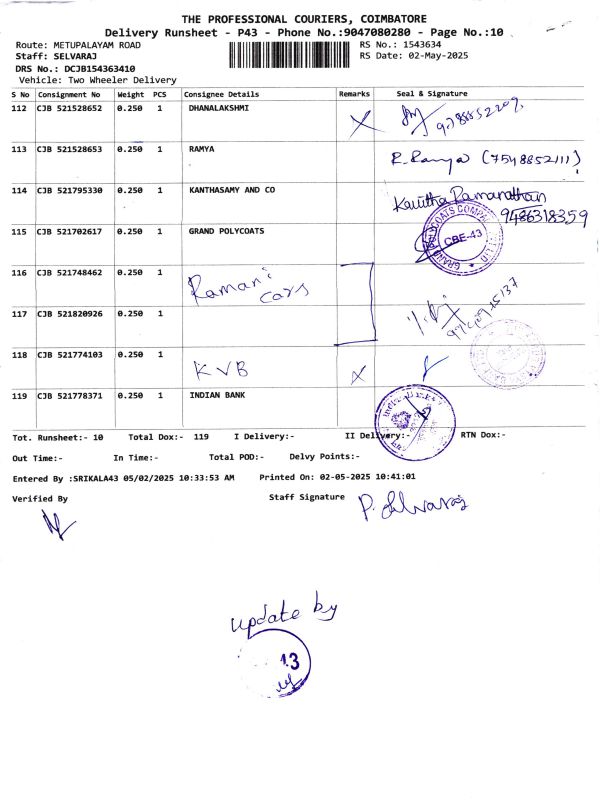 THE PROFESSIONAL COURIERS, COIMBATORE
Delivery Runsheet - P43 - Phone No.:9047080280 - Page No.:10
Route: METUPALAYAM ROAD RS No.: 1543634
Staff: SELVARAJ RS Date: 02-May-2025
DRS No.: DCJB154363410
Vehicle: Two Wheeler Delivery
S No Consignment No Weight PCS Consignee Details Remarks Seal & Signature
112 CJB 521528652 0.250 1 DHANALAKSHMI
113 CJB 521528653 0.250 1 RAMYA R. Ramya (7548852111)
114 CJB 521795330 0.250 1 KANTHASAMY AND CO Kavitha Ramanathan
9486318359
115 CJB 521702617 0.250 1 GRAND POLYCOATS CBE-43
116 CJB 521748462 0.250 1 Ramani
Cars
117 CJB 521820926 0.250 1
118 CJB 521774103 0.250 1 KVB
119 CJB 521778371 0.250 1 INDIAN BANK
Tot. Runsheet:- 10 Total Dox:- 119 I Delivery:- II Delivery:- RTN Dox:-
Out Time:- In Time:- Total POD:- Delvy Points:-
Entered By :SRIKALA43 05/02/2025 10:33:53 AM Printed On: 02-05-2025 10:41:01
Verified By Staff Signature P. Selvaraj
update by
13